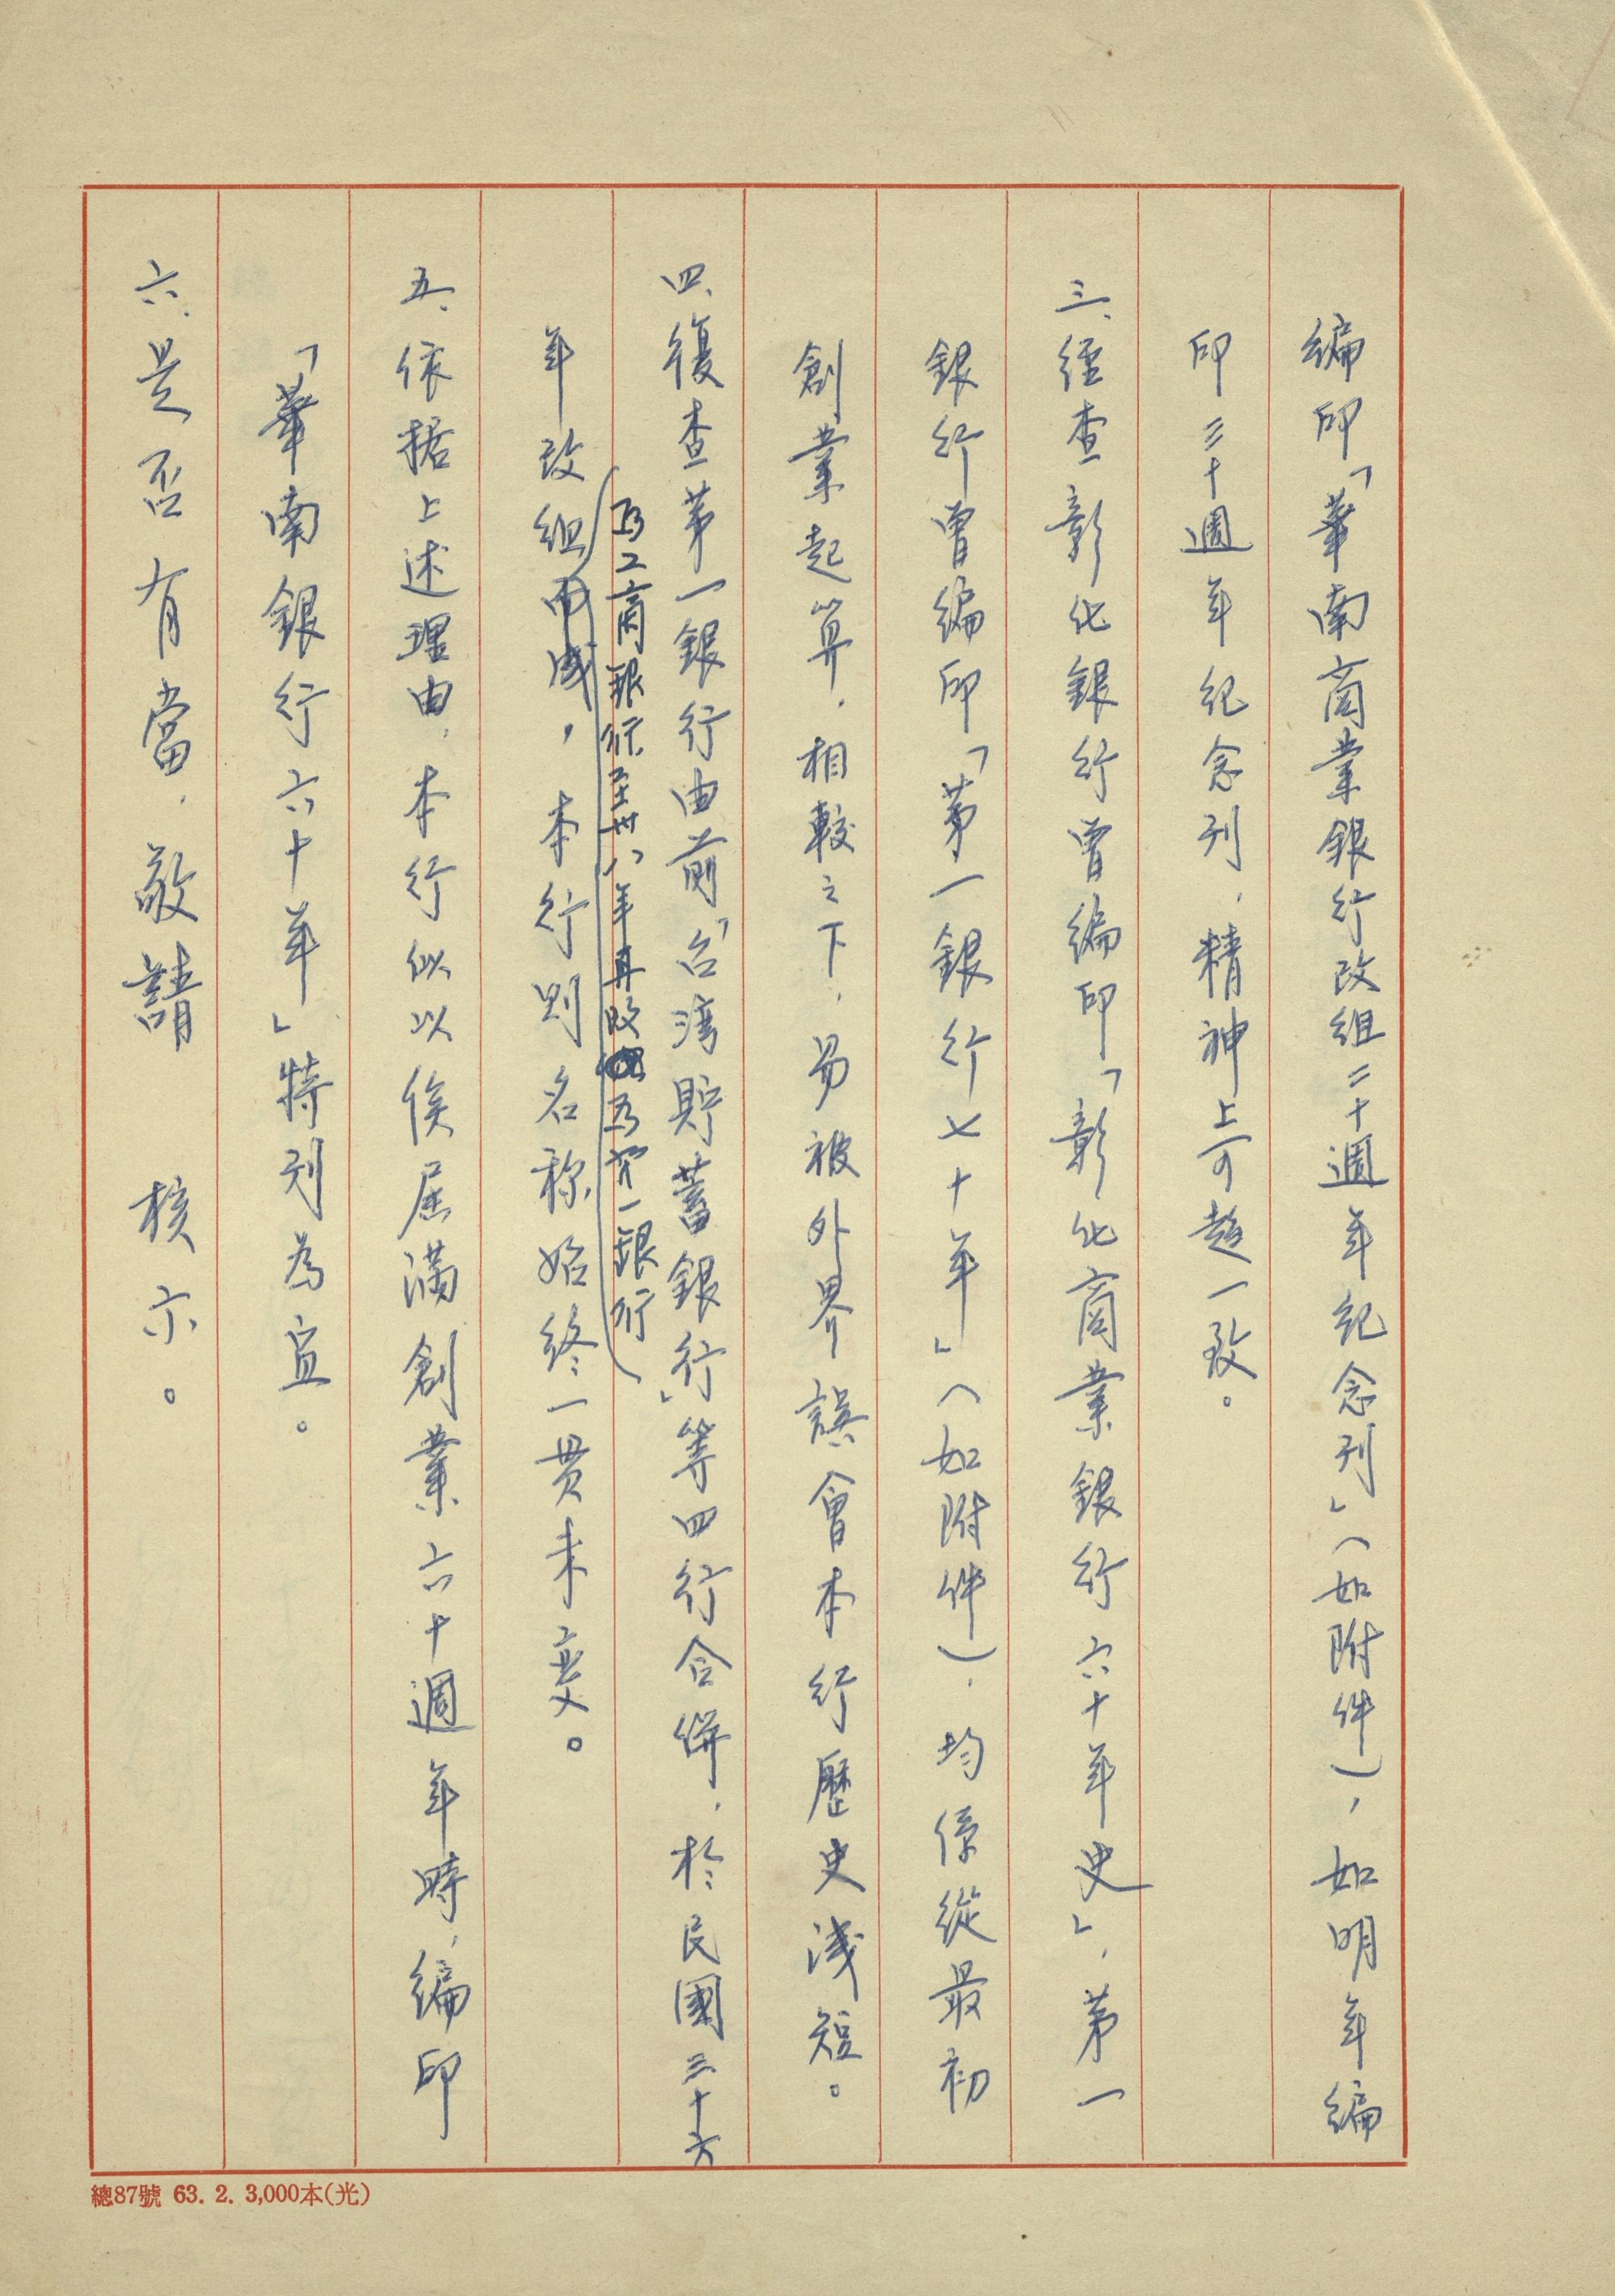 編印「華南商業銀行改組二十週年紀念刊」(如附件),如明年編
印三十週年紀念刊,精神上可趨一致。
三、經查彰化銀行曾編印「彰化商業銀行六十年史」,第一
銀行曾編印「第一銀行七十年」(如附件),均係從最初
創業起算,相較之下,易被外界誤會本行歷史淺短。
四、復查第一銀行由前「台湾貯蓄銀行」等四行合併,於民國三十六
(為工商銀行至卅八年再改為第一銀行)
年改組而成,本行則名称始終一貫未变。
五、依据上述理由,本行似以俟屆滿創業六十週年時,編印
「華南銀行六十年」特刊為宜。
六、是否有當,敬請 核示。
總87號 63. 2. 3,000本(光)